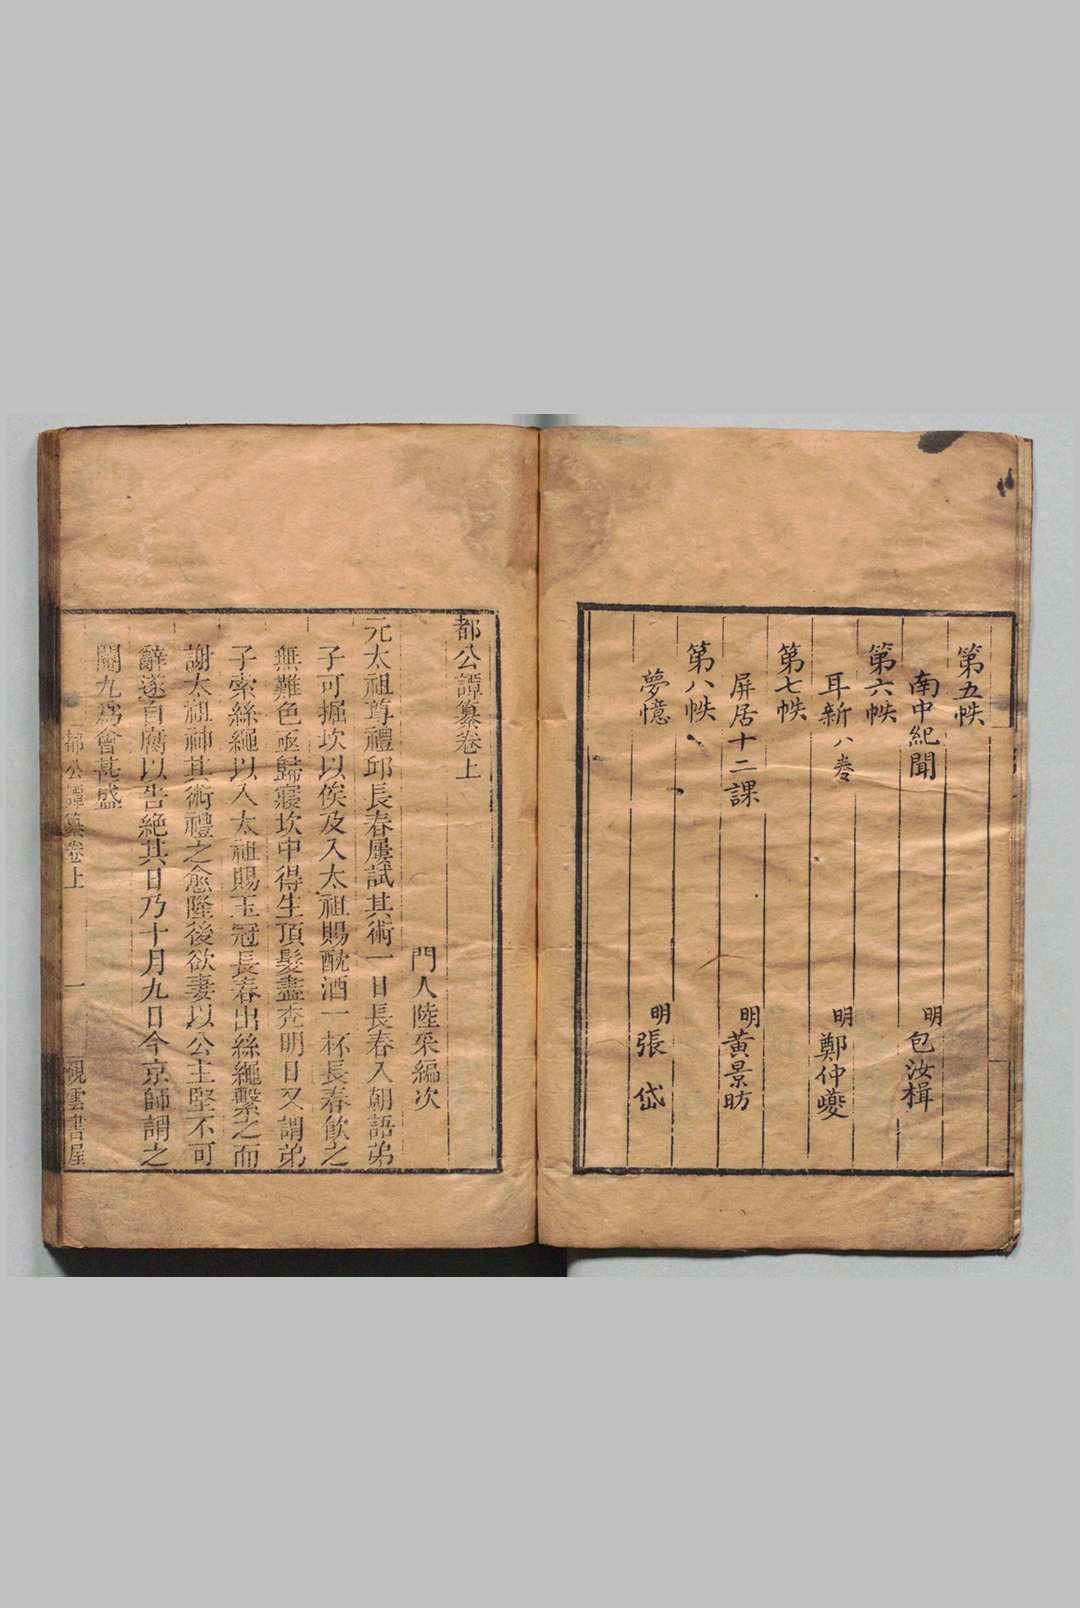 第五帙
南中紀聞 明包汝楫
第六帙
耳新八卷 明鄭仲夔
第七帙
屏居十二課 明黃景昉
第八帙
夢憶 明張岱
都公譚纂卷上
門人陸采編次
元太祖尊禮邱長春屢試其術一日長春入朝語弟
子可掘坎以俟及入太祖賜酖酒一杯長春飲之
無難色亟歸寢坎中得生頂髮盡禿明日又謂弟
子索絲繩以入太祖賜玉冠長春出絲繩繫之而
謝太祖神其術禮之愈隆後欲妻以公主堅不可
辭遂自腐以告絶其日乃十月九日今京師謂之
閹九爲會甚盛
都公譚纂卷上 一 硯雲書屋